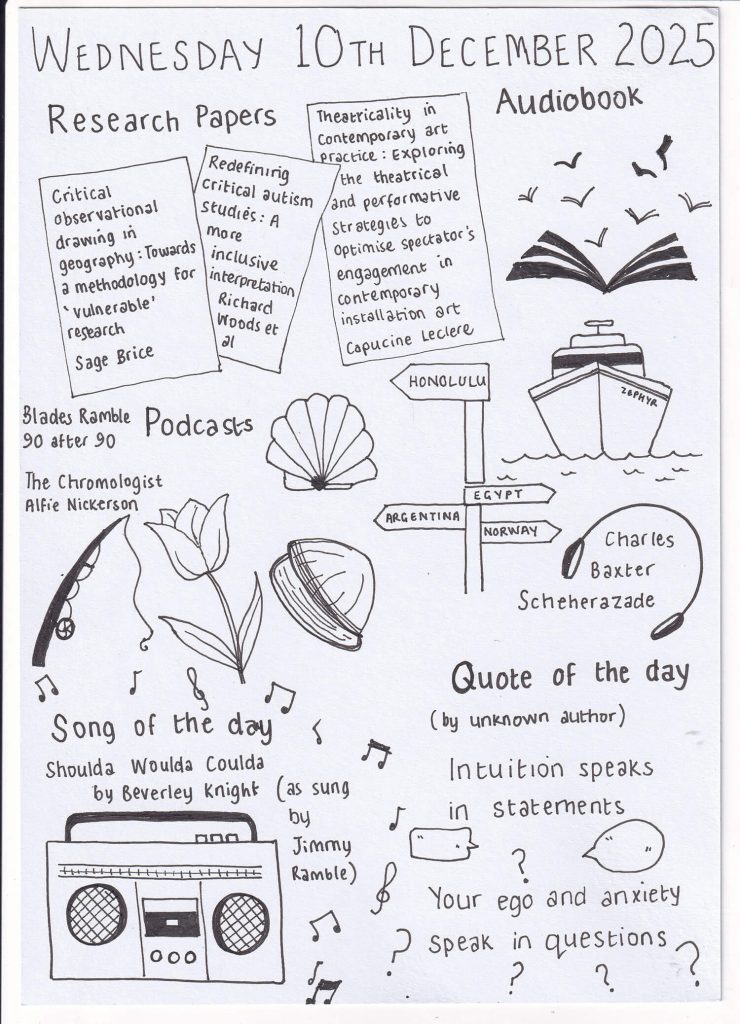 WEDNESDAY 10TH DECEMBER 2025
Research Papers
Critical
observational
drawing in
geography: Towards
a methodology for
'vulnerable'
research
Sage Brice
Redefining
critical autism
studies: A
more
inclusive
interpretation
Richard
Woods et
al
Theatricality in
Contemporary art
practice: Exploring
the theatrical
and performative
Strategies to
Optimise spectator's
engagement in
contemporary
installation art
Capucine Leclere
Audiobook
ZEPHYR
HONOLULU
EGYPT
ARGENTINA
NORWAY
Charles
Baxter
Scheherazade
Podcasts
Blades Ramble
90 after 90
The Chromologist
Alfie Nickerson
Song of the day
Shoulda Woulda Coulda
by Beverley Knight (as sung
by
Jimmy
Ramble)
Quote of the day
(by unknown author)
Intuition speaks
in statements
?
Your ego and anxiety
speak in questions
? ? ? ?